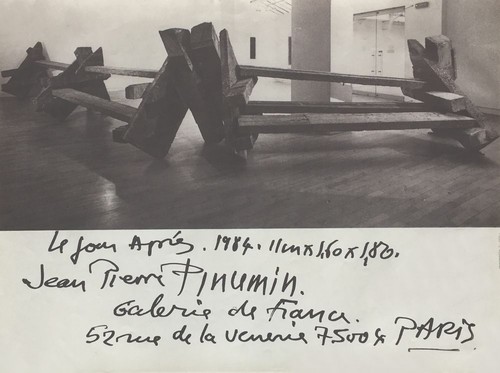 Le Jour Après. 1984. 11m x 1,60 x 1,80.
Jean Pierre
Galerie de France.
52 rue de la verrerie 75004 PARIS